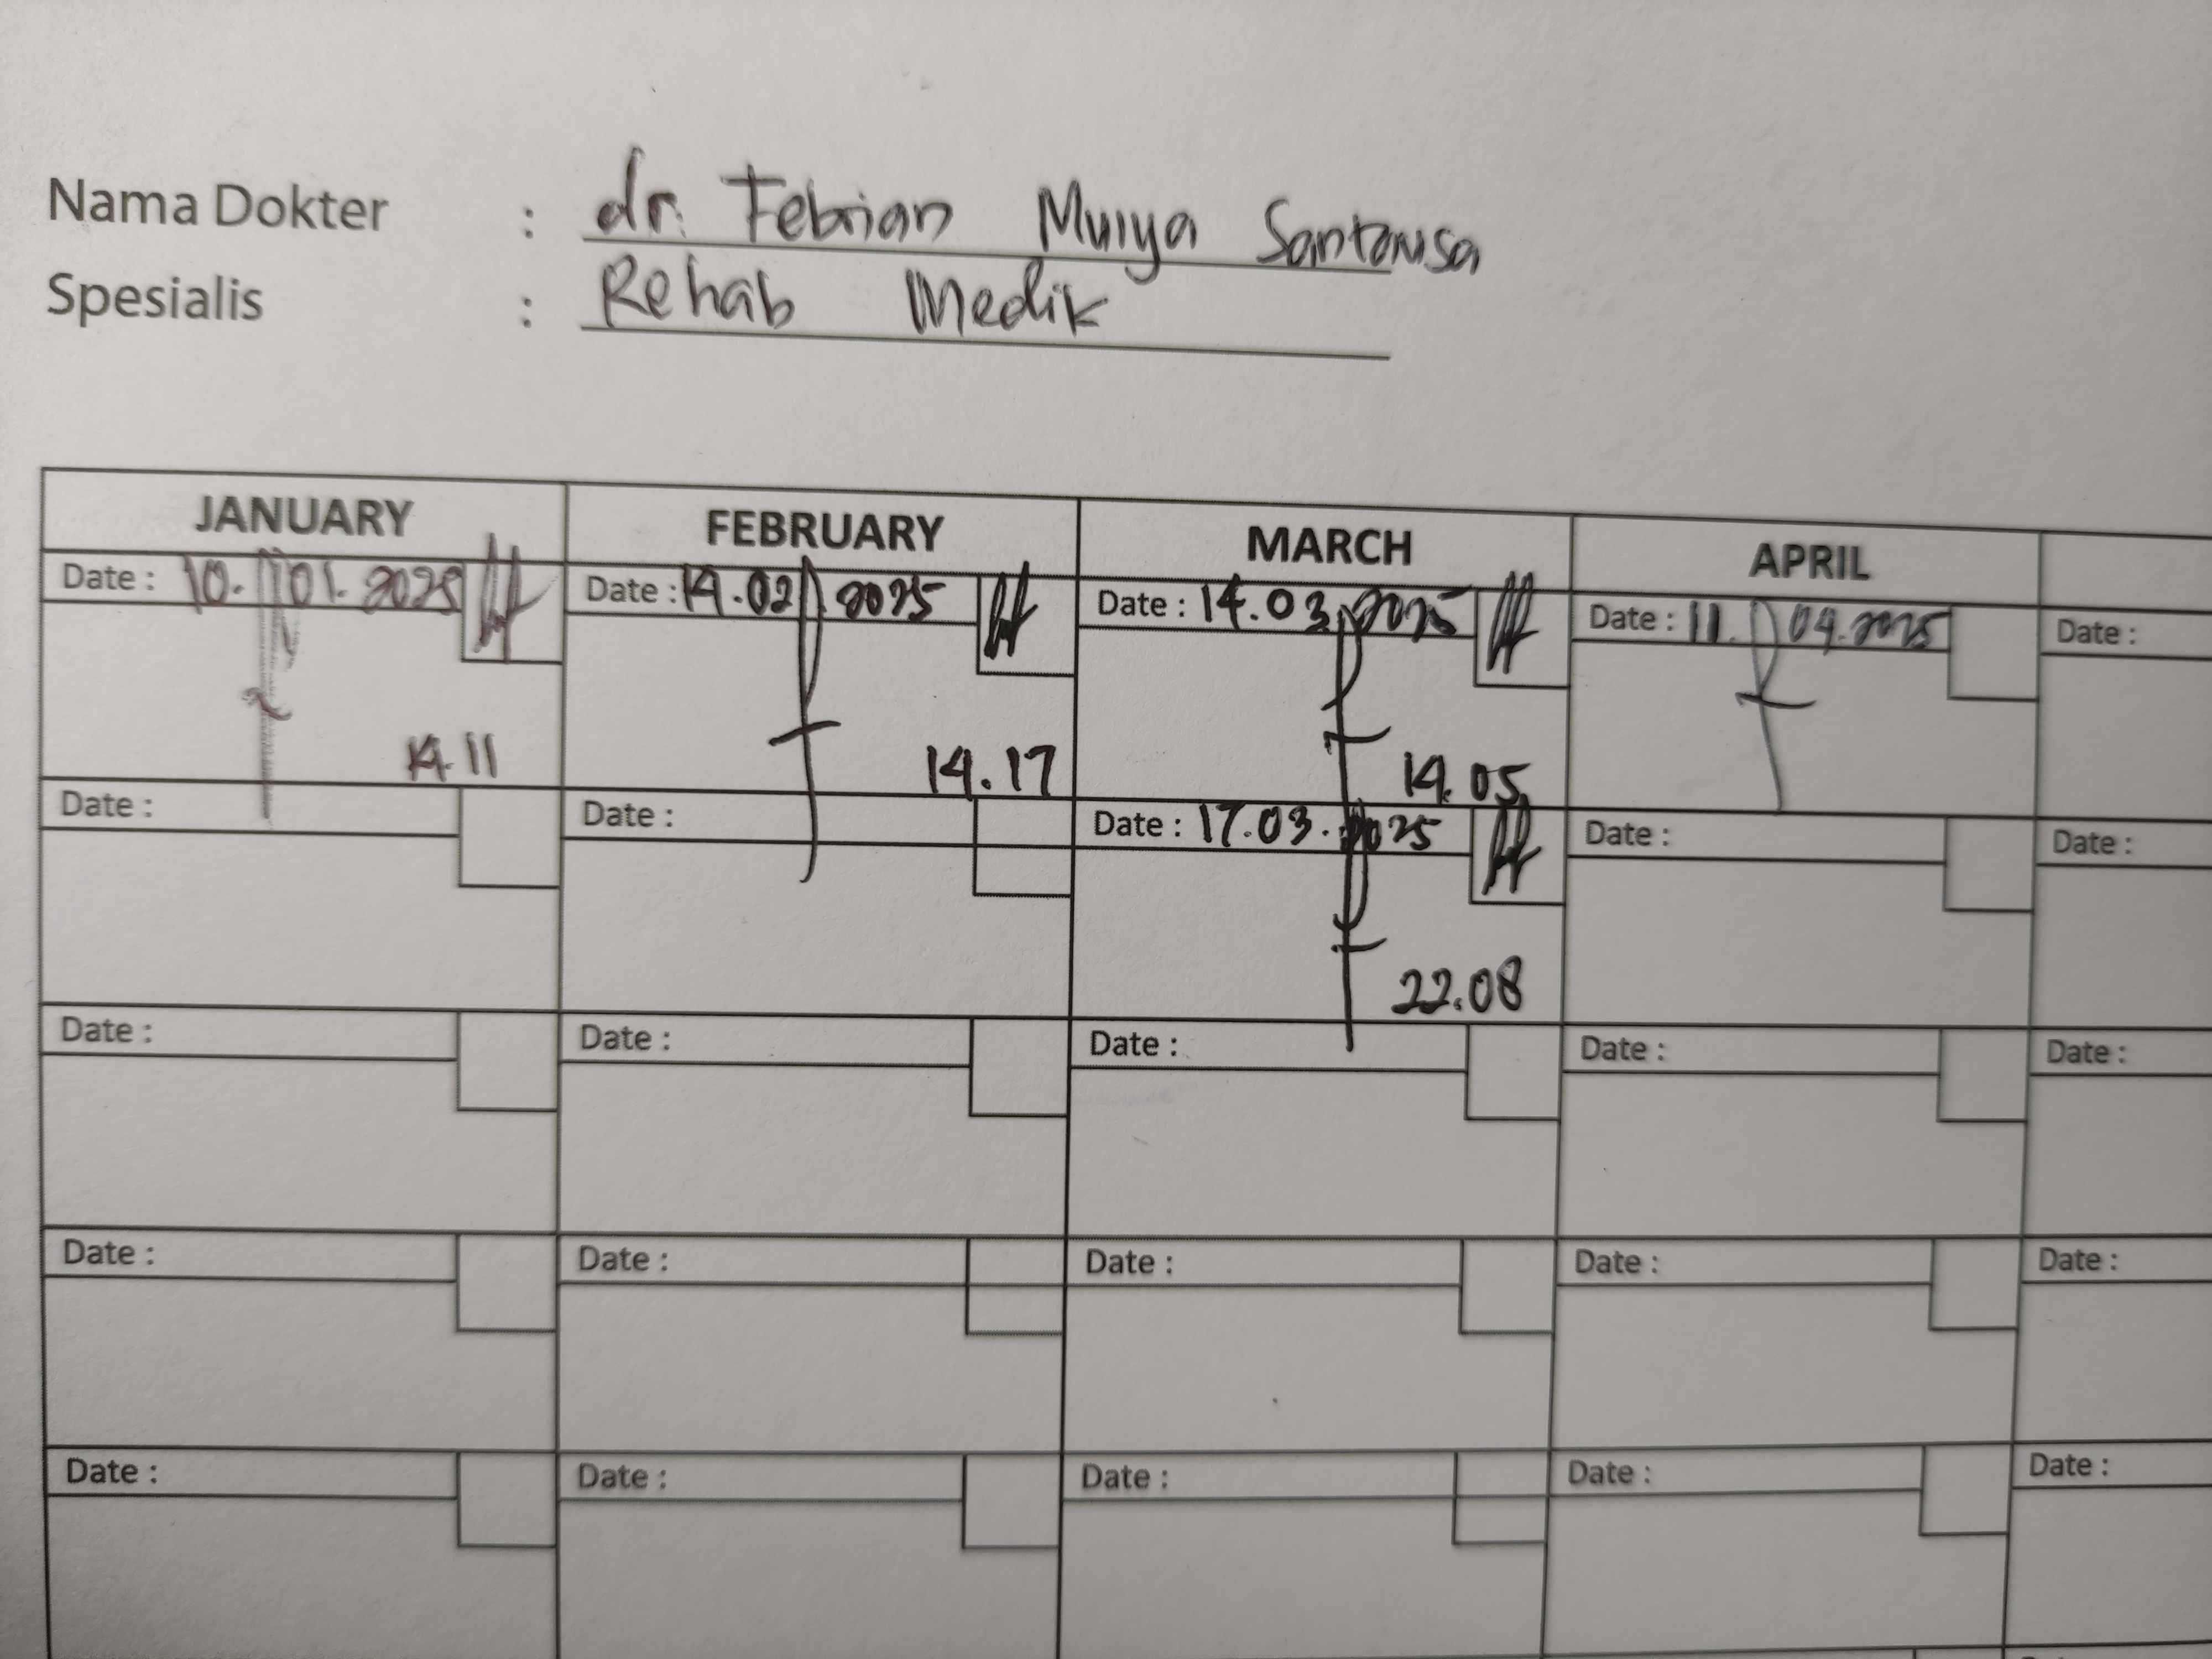 Nama Dokter : dr. Febrian Mulya Santausa
Spesialis : Rehab Medik
JANUARY FEBRUARY MARCH APRIL
Date : 10. 01. 2025 Date : 14.02 2025 Date : 14.03. 2025 Date : 11. 04. 2025 Date :
14.11 14.17 14.05
Date : Date : Date : 17.03. 2025 Date : Date :
22.08
Date : Date : Date : Date : Date :
Date : Date : Date : Date : Date :
Date : Date : Date : Date : Date :